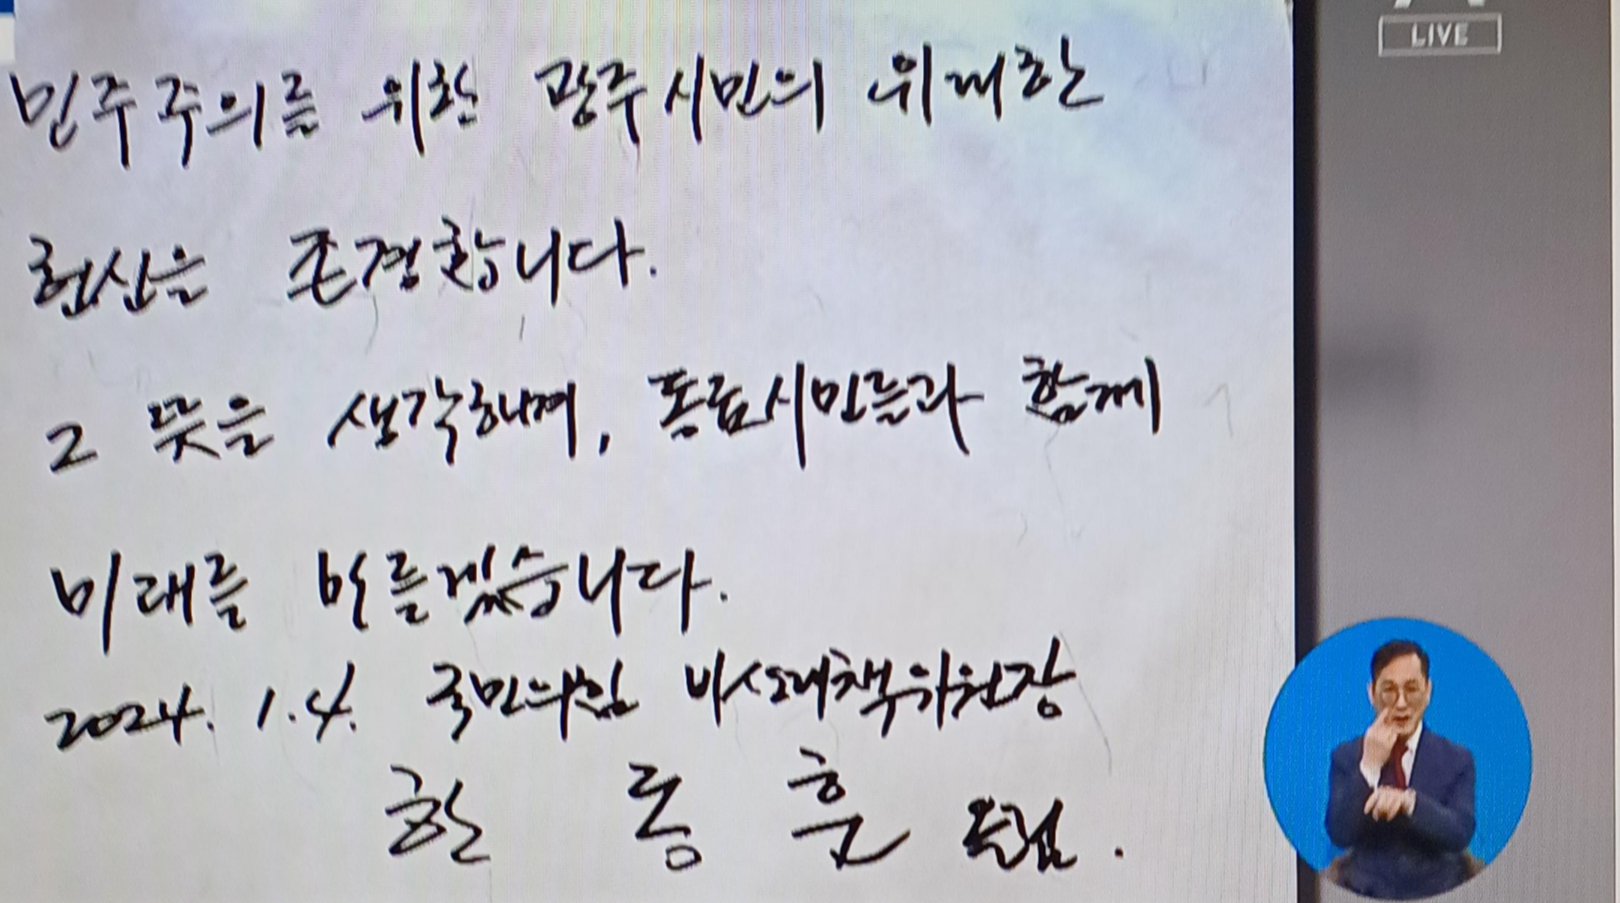 LIVE
민주주의를 위한 광주시민의 위대한
헌신을 존경합니다.
그 뜻을 생각하며, 동료시민들과 함께
미래를 만들겠습니다.
2024. 1. 4. 국민의힘 비상대책위원장
한 동 훈 드림.